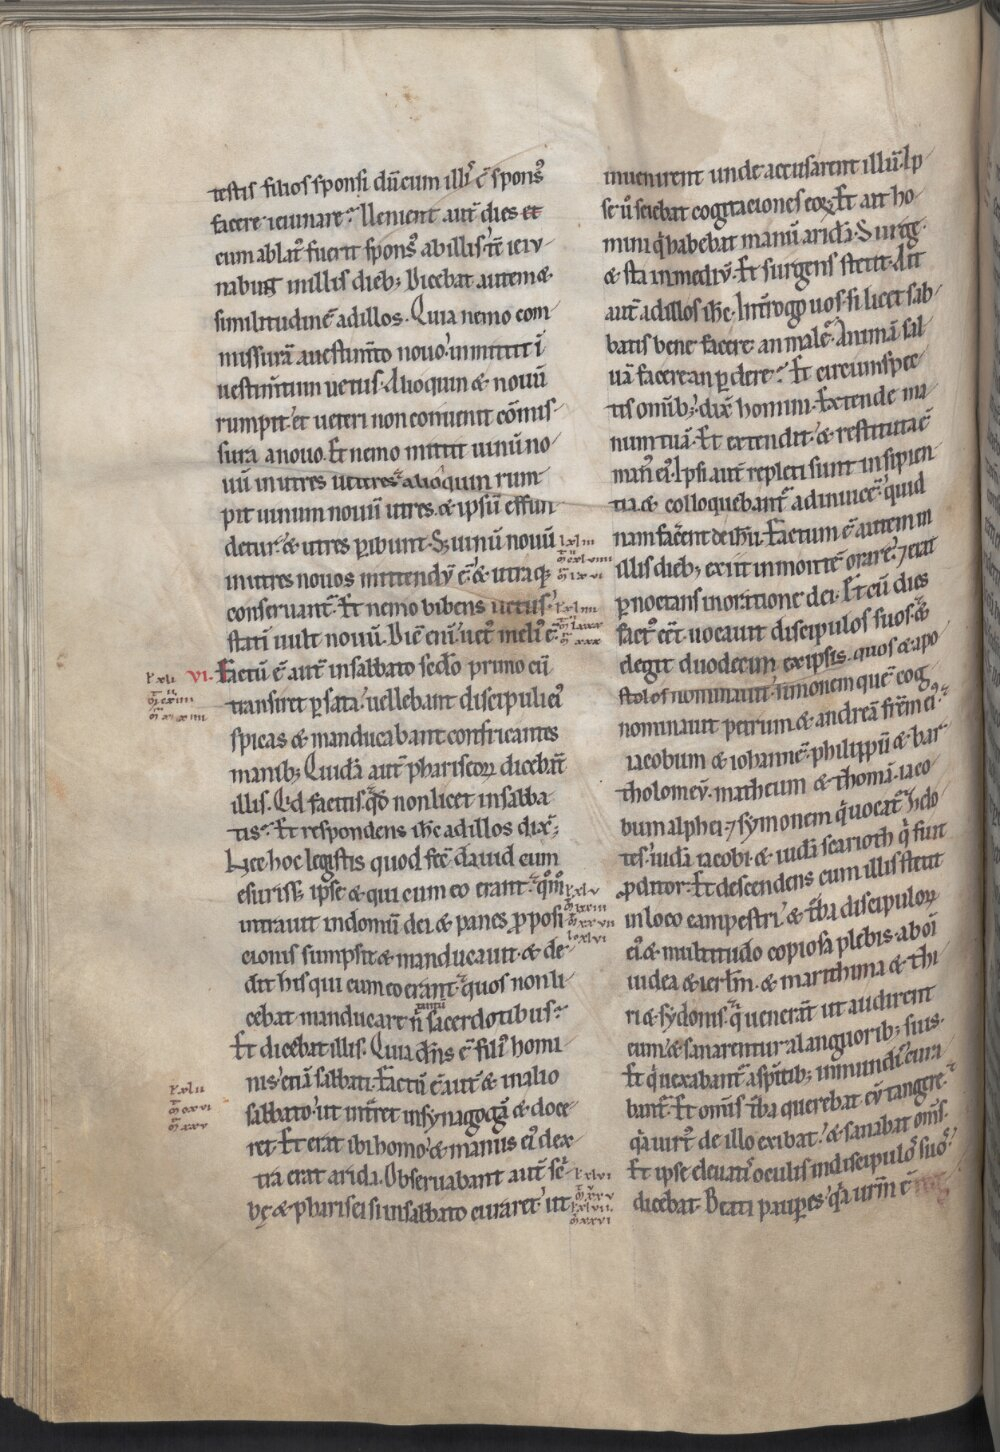 testis filios sponsi dū cum illis̉ ē spons᷒
facere ieiunare? Uenient aut̄ dies et
cum ablat᷒ fuerit spons᷒ ab illis. t̄c ieiu-
nabuɳt in illis dieb; Dicebat autem &
similitudinē ad illos. Quia nemo com-
missurā a uestim̄to nouo inmittit ī
uestim̄tum uetus. Alioquin & nouū
rumpit. et ueteri non conuenit cōmis-
sura a nouo. Et nemo mittit uinū no-
uū in utres ueteres alioquin rum-
pit uinum nouū utres. & ipsū effun-
detur. & utres ꝑibunt. S; uinū nouū
in utres nouos mittendū ē. & utraq;
conseruant̄. Et nemo bibens uetus
stati uult nouū. Dic̄ eni᷒. uet᷒ meli᷒ ē.
VI. Factū ē aut̄ in sabbato sedo primo cū
transiret ꝑ sata. uellebant discipuli ei᷒
spicas & manducabant confricantes
manib; Quidā aut̄ phariseoꝝ dicebāt
illis. Qd facitis. qd non licet in sabba-
tis? Et respondens ihc ad illos dix̄;
Nec hoc legistis quod fec̄ dauid cum
esuriss; ipse & qui cum eo erant. qm̊o
intrauit in domū dei. & panes ꝓposi-
cionis sumpsit & manducauit. & de-
dit his qui cum eo erant. quos non li-
cebat manducare n̄ tantū sacerdotibus?
Et dicebat illis. Quia dn̄s ē fili᷒ homi-
nis eciā sabbati. Factū ē aut̄ & in alio
sabbato. ut int̄ret in synagogā & doce-
ret. Et erat ibi homo. & manus ei᷒ dex-
tra erat arida. Obseruabant aut̄ sc̄ri-
bę & pharisei si in sabbato curaret. ut
inuenirent unde accusarent illū. Ip-
se ů sciebat cogitaciones eoꝝ. Et ait ho-
mini q̇ habebat manū aridā. Surge
& sta in mediū. Et surgens stetit. Ait
aut̄ ad illos ihc. Int̄rogo uos. si licet sab-
batis bene facere an male. Animā sal-
uā facere an ꝑdere? Et circumspec-
tis om̄ib; dix̄ homini. Extende ma-
num tuā. Et extendit. & restituta ē
man᷒ ei᷒. Ipsi aut̄ repleti sunt insipien-
tia. & colloquebant̄ ad inuicē. quid
nam fac̄ent de ihū. Factum ē autem in
illis dieb; exiit in montē orare. ⁊ erat
ꝑnoctans in oratione dei. Et cū dies
fact᷒ eēt. uocauit discipulos suos. &
elegit duodecim ex ipsis. quos & apo-
stolos nominauit. simonem quē cog-
nominauit petrum. & andreā frēm ei᷒.
iacobum & iohannē. philippū & bar-
tholomeū. matheum & thomā. iaco-
bum alphei. ⁊ symonem q̇ uocat᷒ zelo-
tes. iudā iacobi. & iudā scarioth q̇ fuit
ꝓditor. Et descendens cum illis stetit
in loco campestri. & t̄ba discipuloꝝ
ei᷒. & multitudo copiosa plebis. ab oī
iudea & ierl̄m. & marithima & thi-
ri & sydonis. q̇ uenerāt ut audirent
eum. & sanarentur a languorib; suis.
Et q̇ uexabant̄ a sp̄itib; inmundis. cura-
bant̄. Et om̄is t̄ba querebat eū tangere.
q̇a uirt᷒ de illo exibat. & sanabat om̄s.
Et ipse eleuatis oculis in discipulos suos.
dicebat. Beati pauꝑes. q̇a ur̄m ē